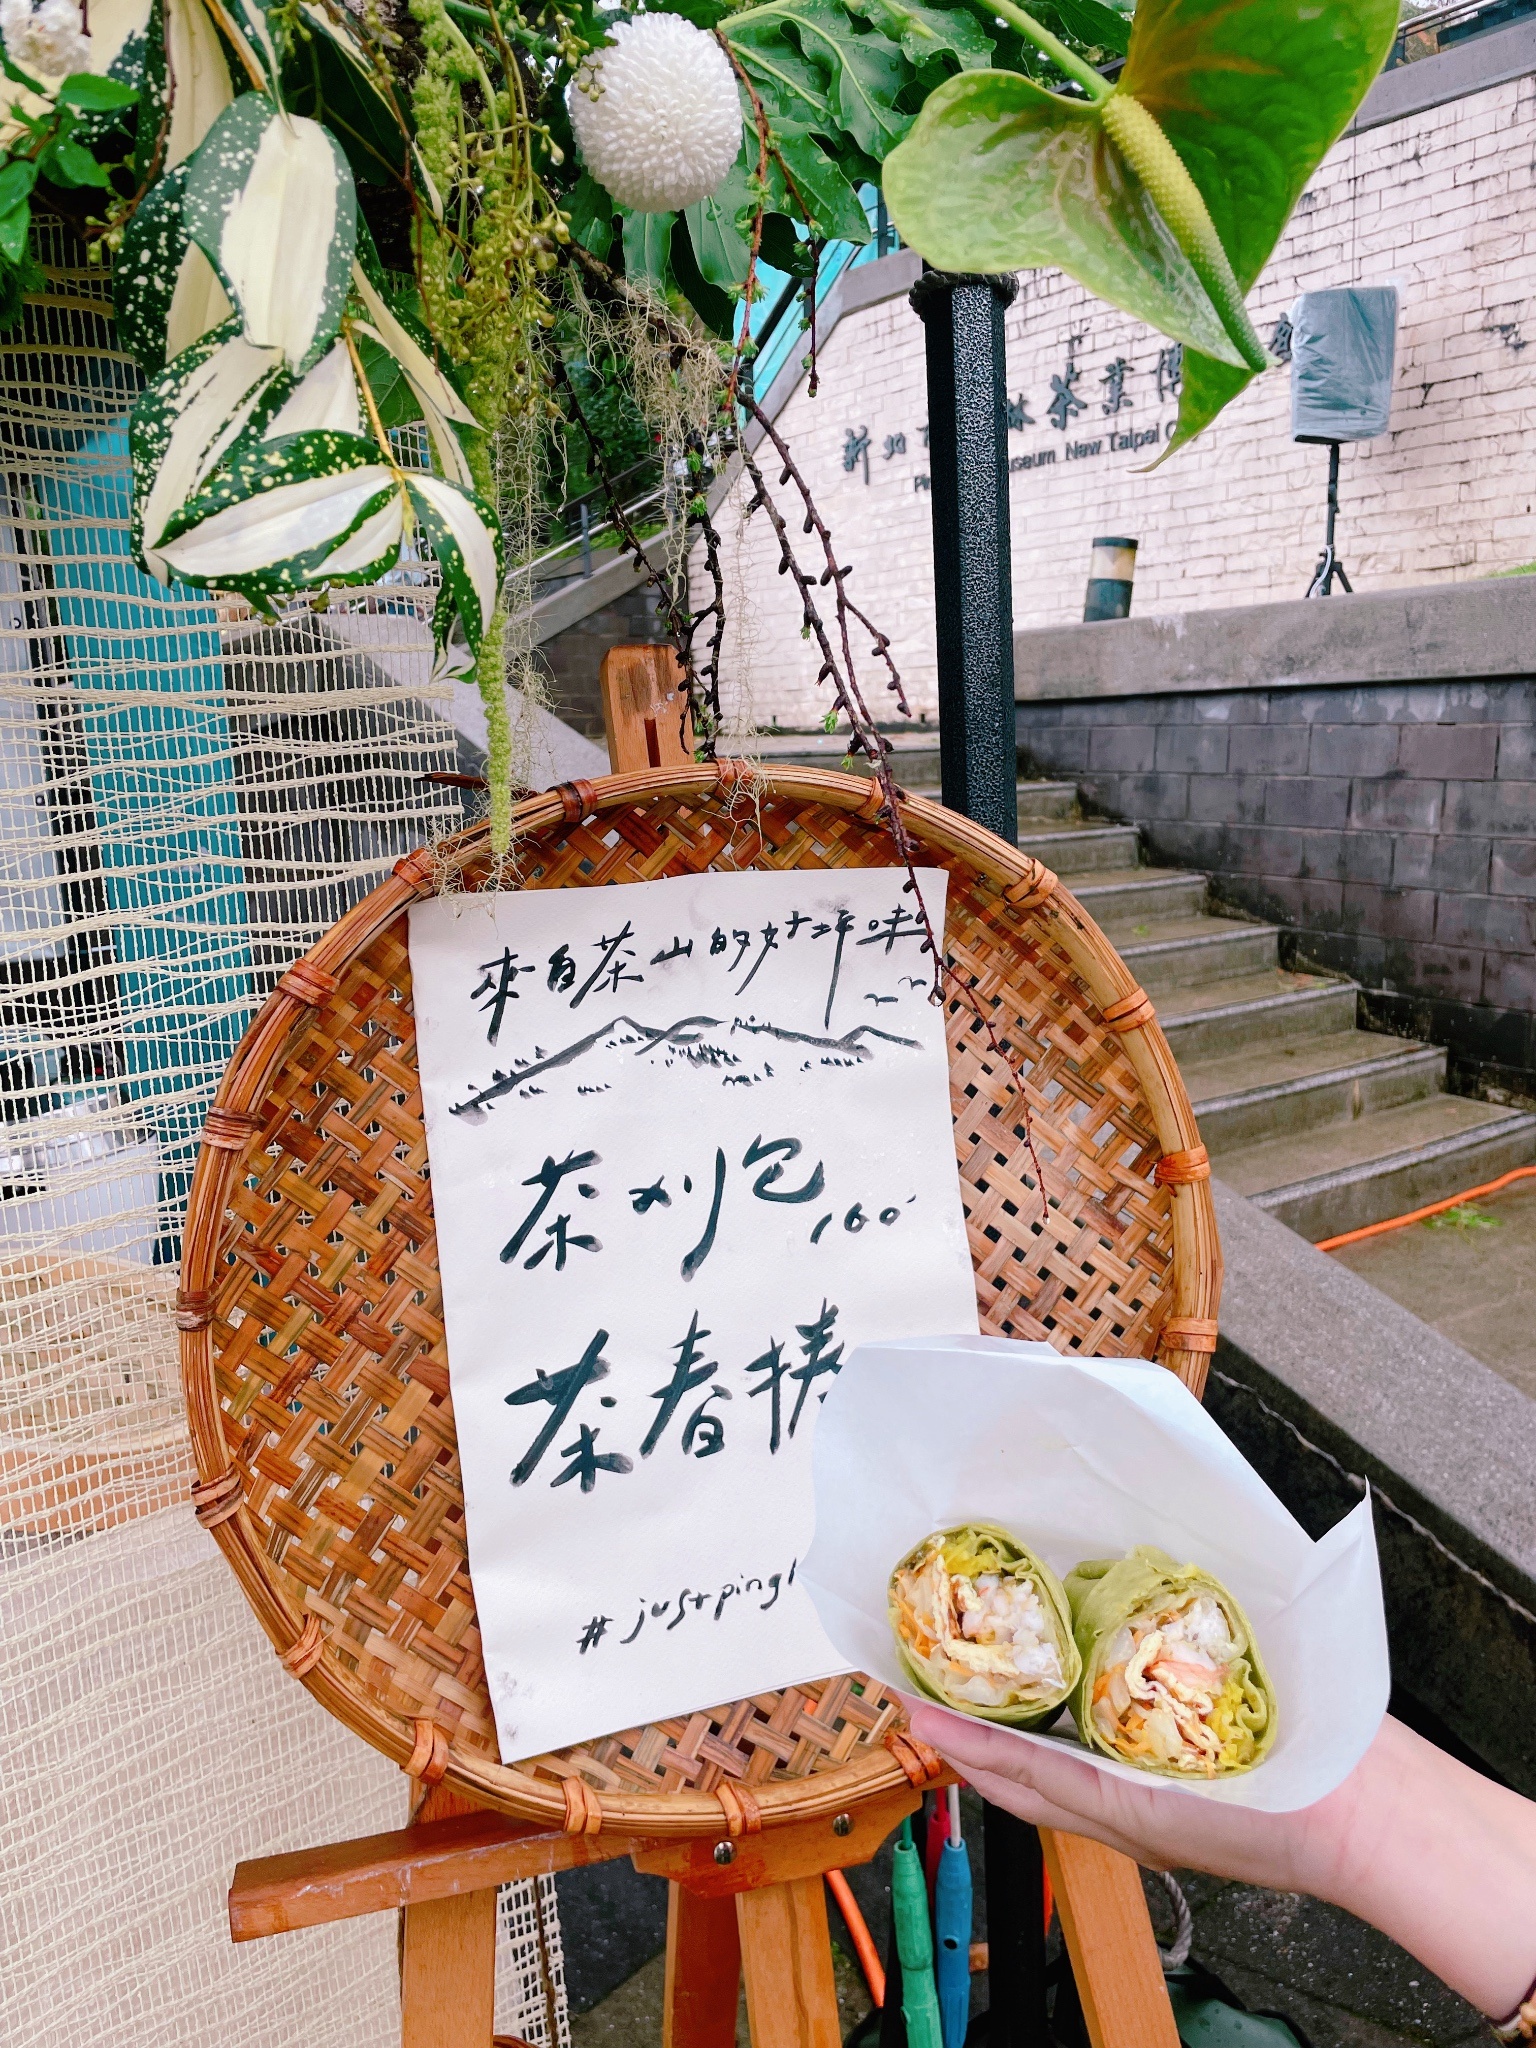 新北 林茶業博
useum New Taipei C
來自茶山的好坪味
茶刈包
100
茶春捲
#justping1